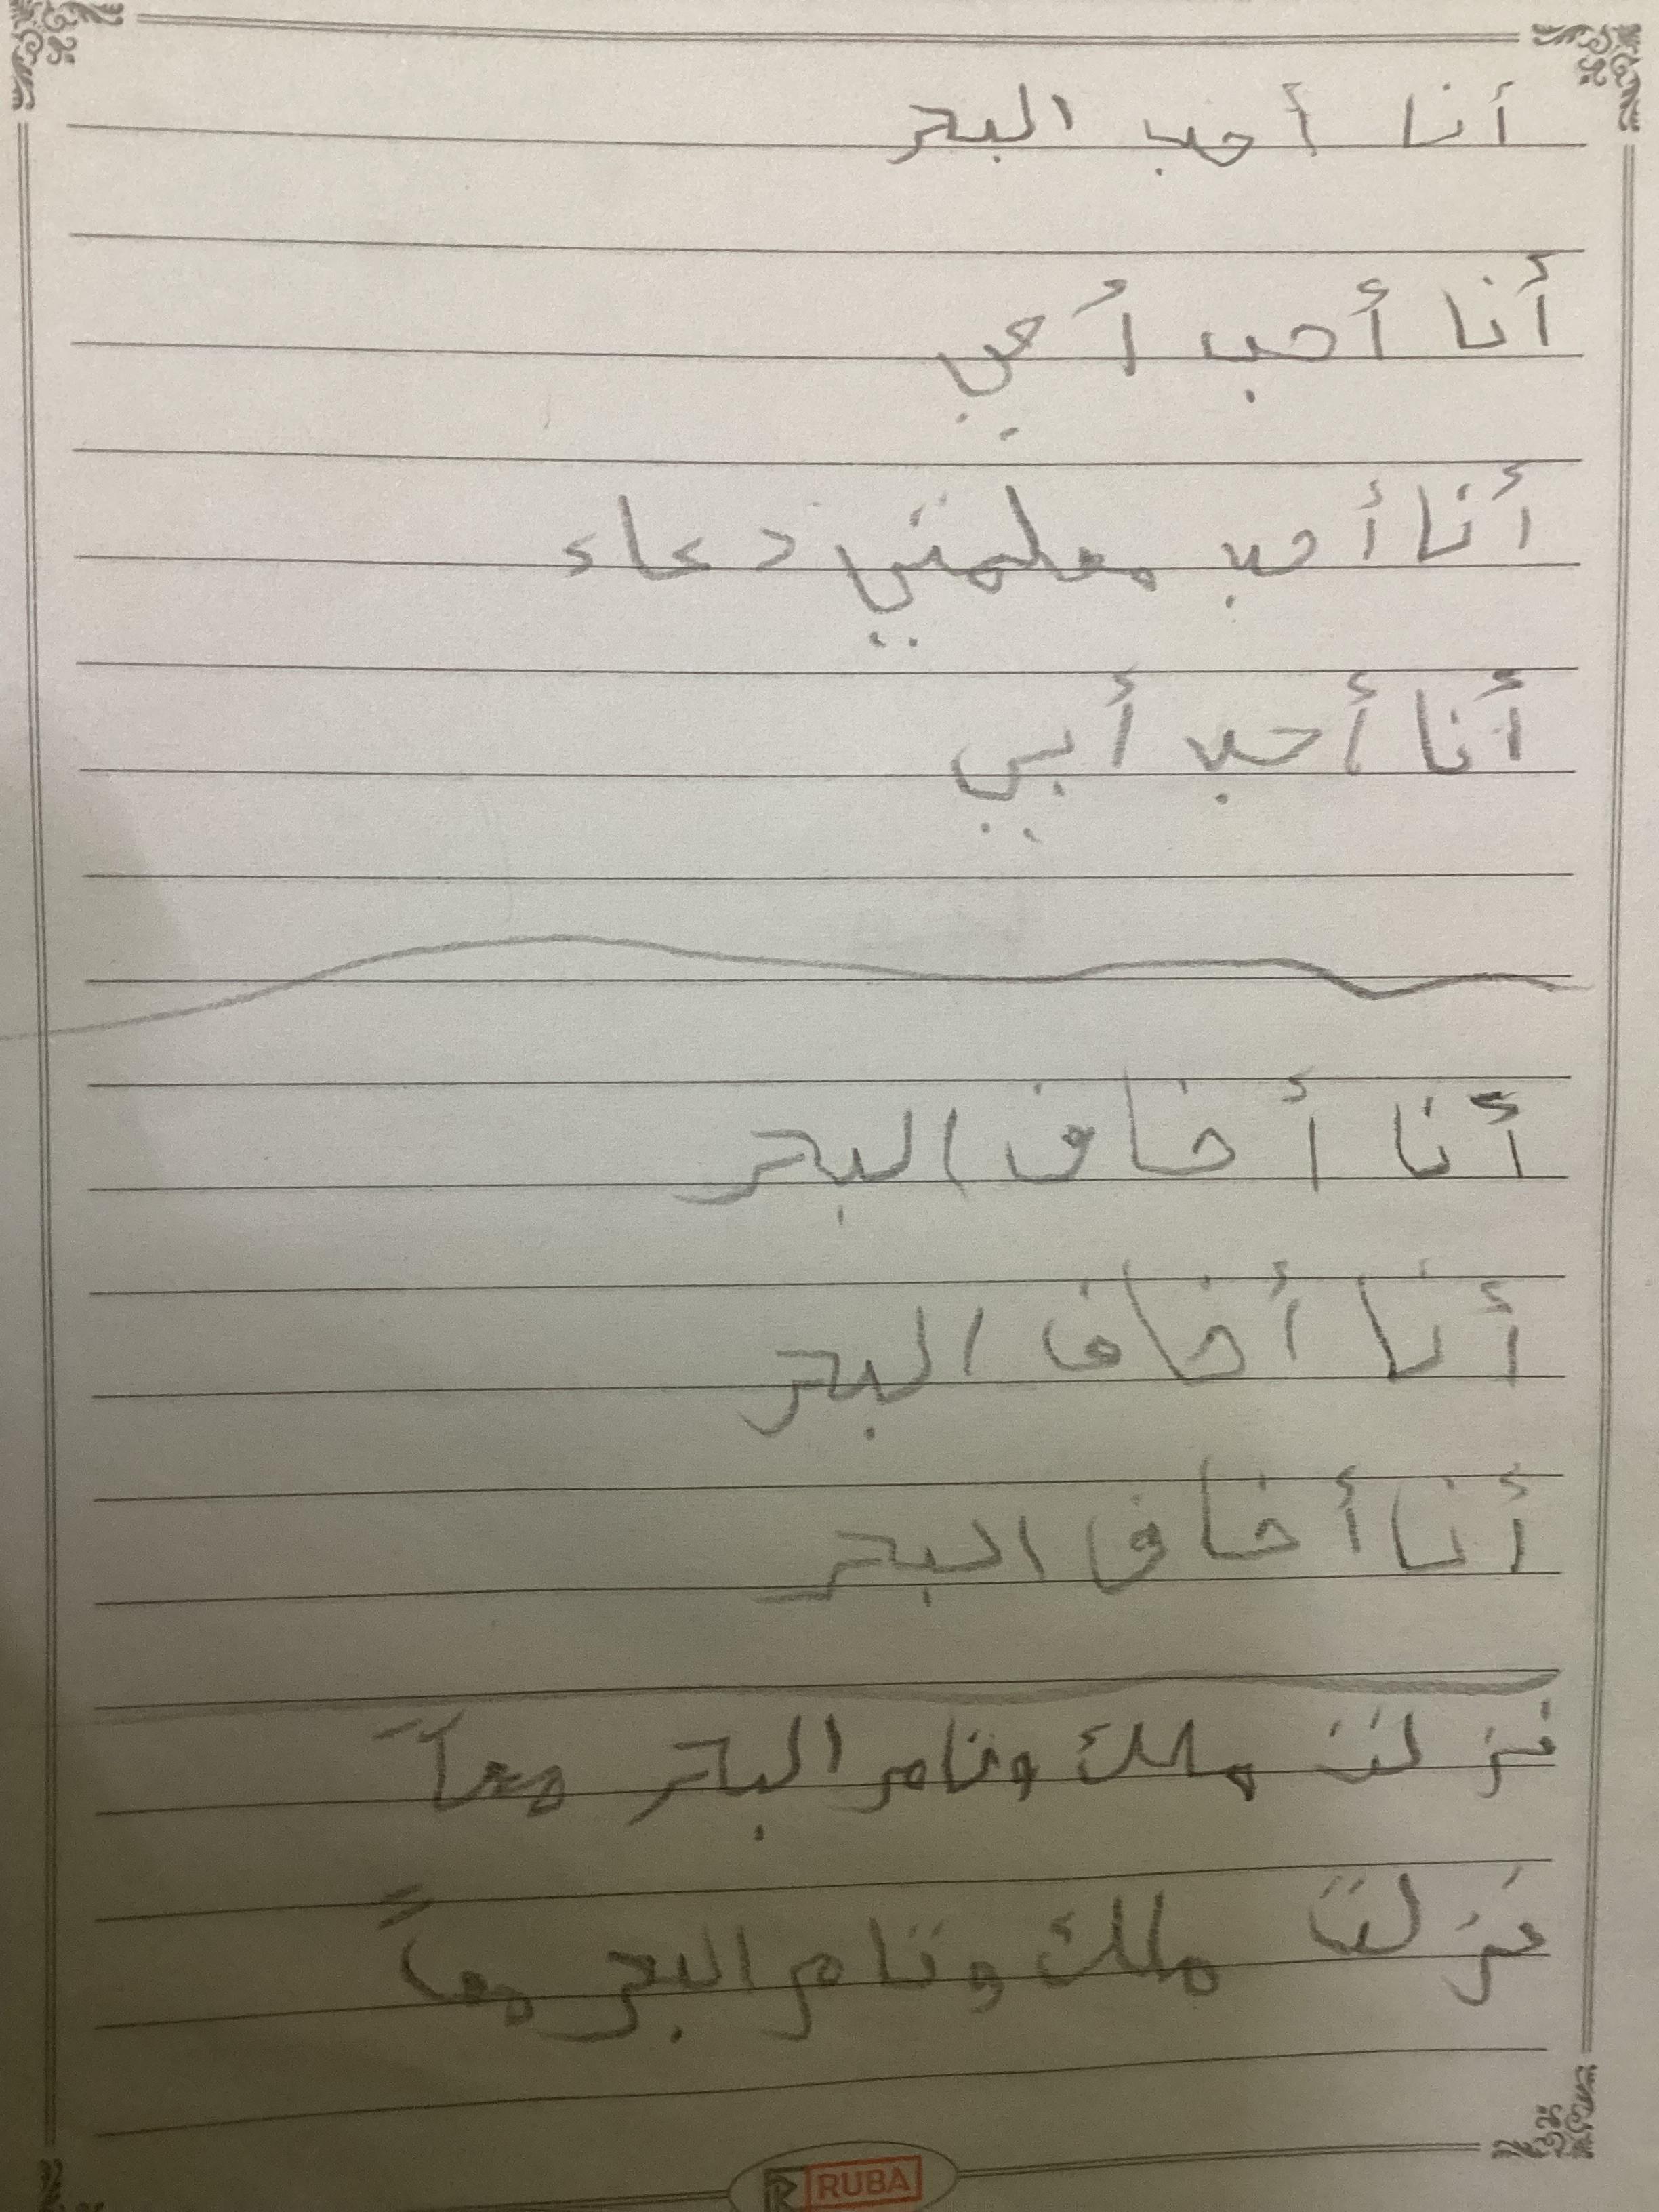 أنا أحب البحر
أنا أحب أمي
أنا أحب معلمتي دعاء
أنا أحب أبي
أنا أخاف البحر
أنا أخاف البحر
أنا أخاف البحر
نزلت ملك وتامر البحر معاً
نزلت ملك وتامر البحر معاً
RUBA